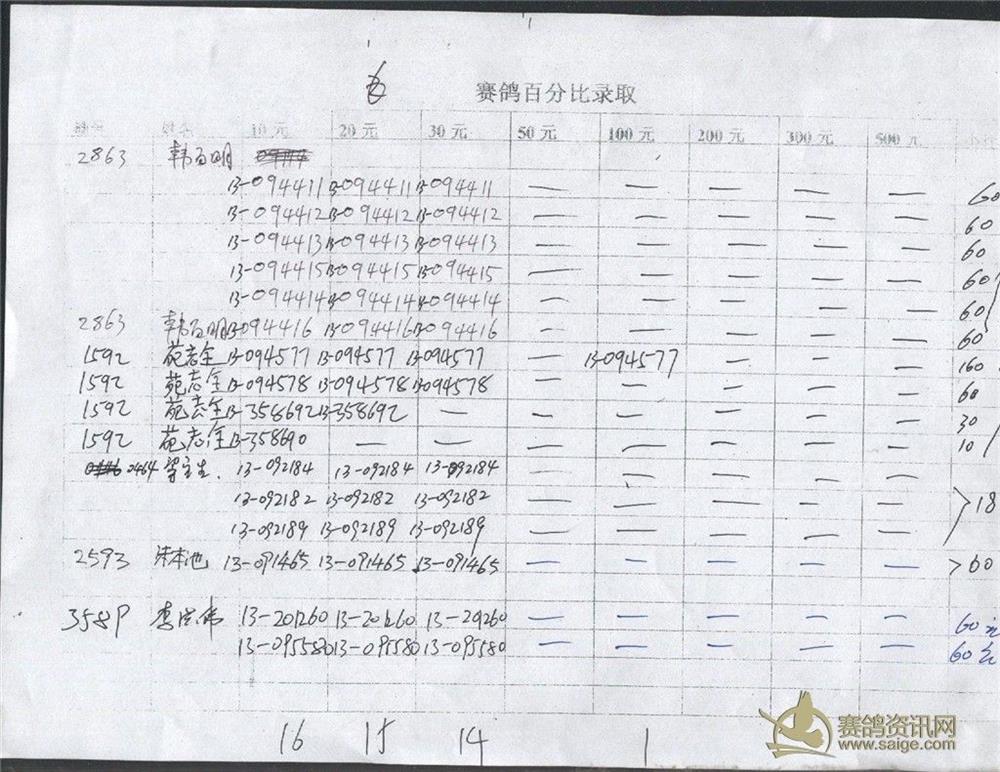 赛鸽百分比录取
棚号 姓名 10元 20元 30元 50元 100元 200元 300元 500元
2863 韩百明
13-094411 13-094411 13-094411 — — — — — 60
13-094412 13-094412 13-094412 — — — — — 60
13-094413 13-094413 13-094413 — — — — — 60
13-094415 13-094415 13-094415 — — — — — 60
13-094414 13-094414 13-094414 — — — — — 60
2863 韩百明 13-094416 13-094416 13-094416 — — — — — 60
1592 苑志全 13-094577 13-094577 13-094577 — 13-094577 — — — 160
1592 苑志全 13-094578 13-094578 13-094578 — — — — — 60
1592 苑志全 13-358692 13-358692 — — — — — — 30
1592 苑志全 13-358690 — — — — — — — 10
0464 13-092184 13-092184 13-092184 — — — — —
13-092182 13-092182 13-092182 — — — — — 18
13-092189 13-092189 13-092189 — — — — —
2593 朱本池 13-091465 13-091465 13-091465 — — — — — 60
3589 李洪伟 13-201260 13-201260 13-201260 — — — — — 60元
13-095580 13-095580 13-095580 — — — — — 60元
16 15 14 1
赛鸽资讯网
www.saige.com